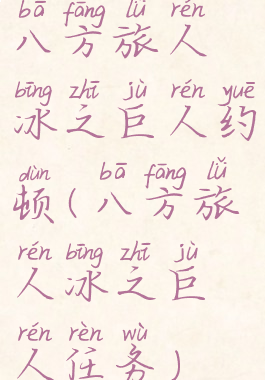 bā fāng lǚ rén
八方旅人
bīng zhī jù rén yuē
冰之巨人约
dùn bā fāng lǚ
顿(八方旅
rén bīng zhī jù
人冰之巨
rén rèn wù
人任务)